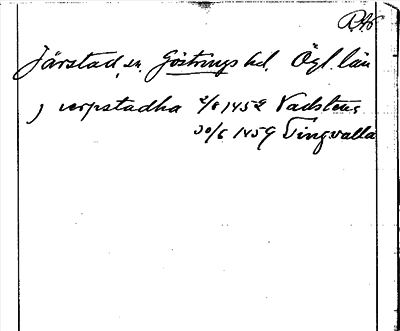 RAp
Järstad, sn. Göstrings hd. Ögl. län
J verpstadha 2/8 1452 Vadstena
30/6 1459 Tingvalla